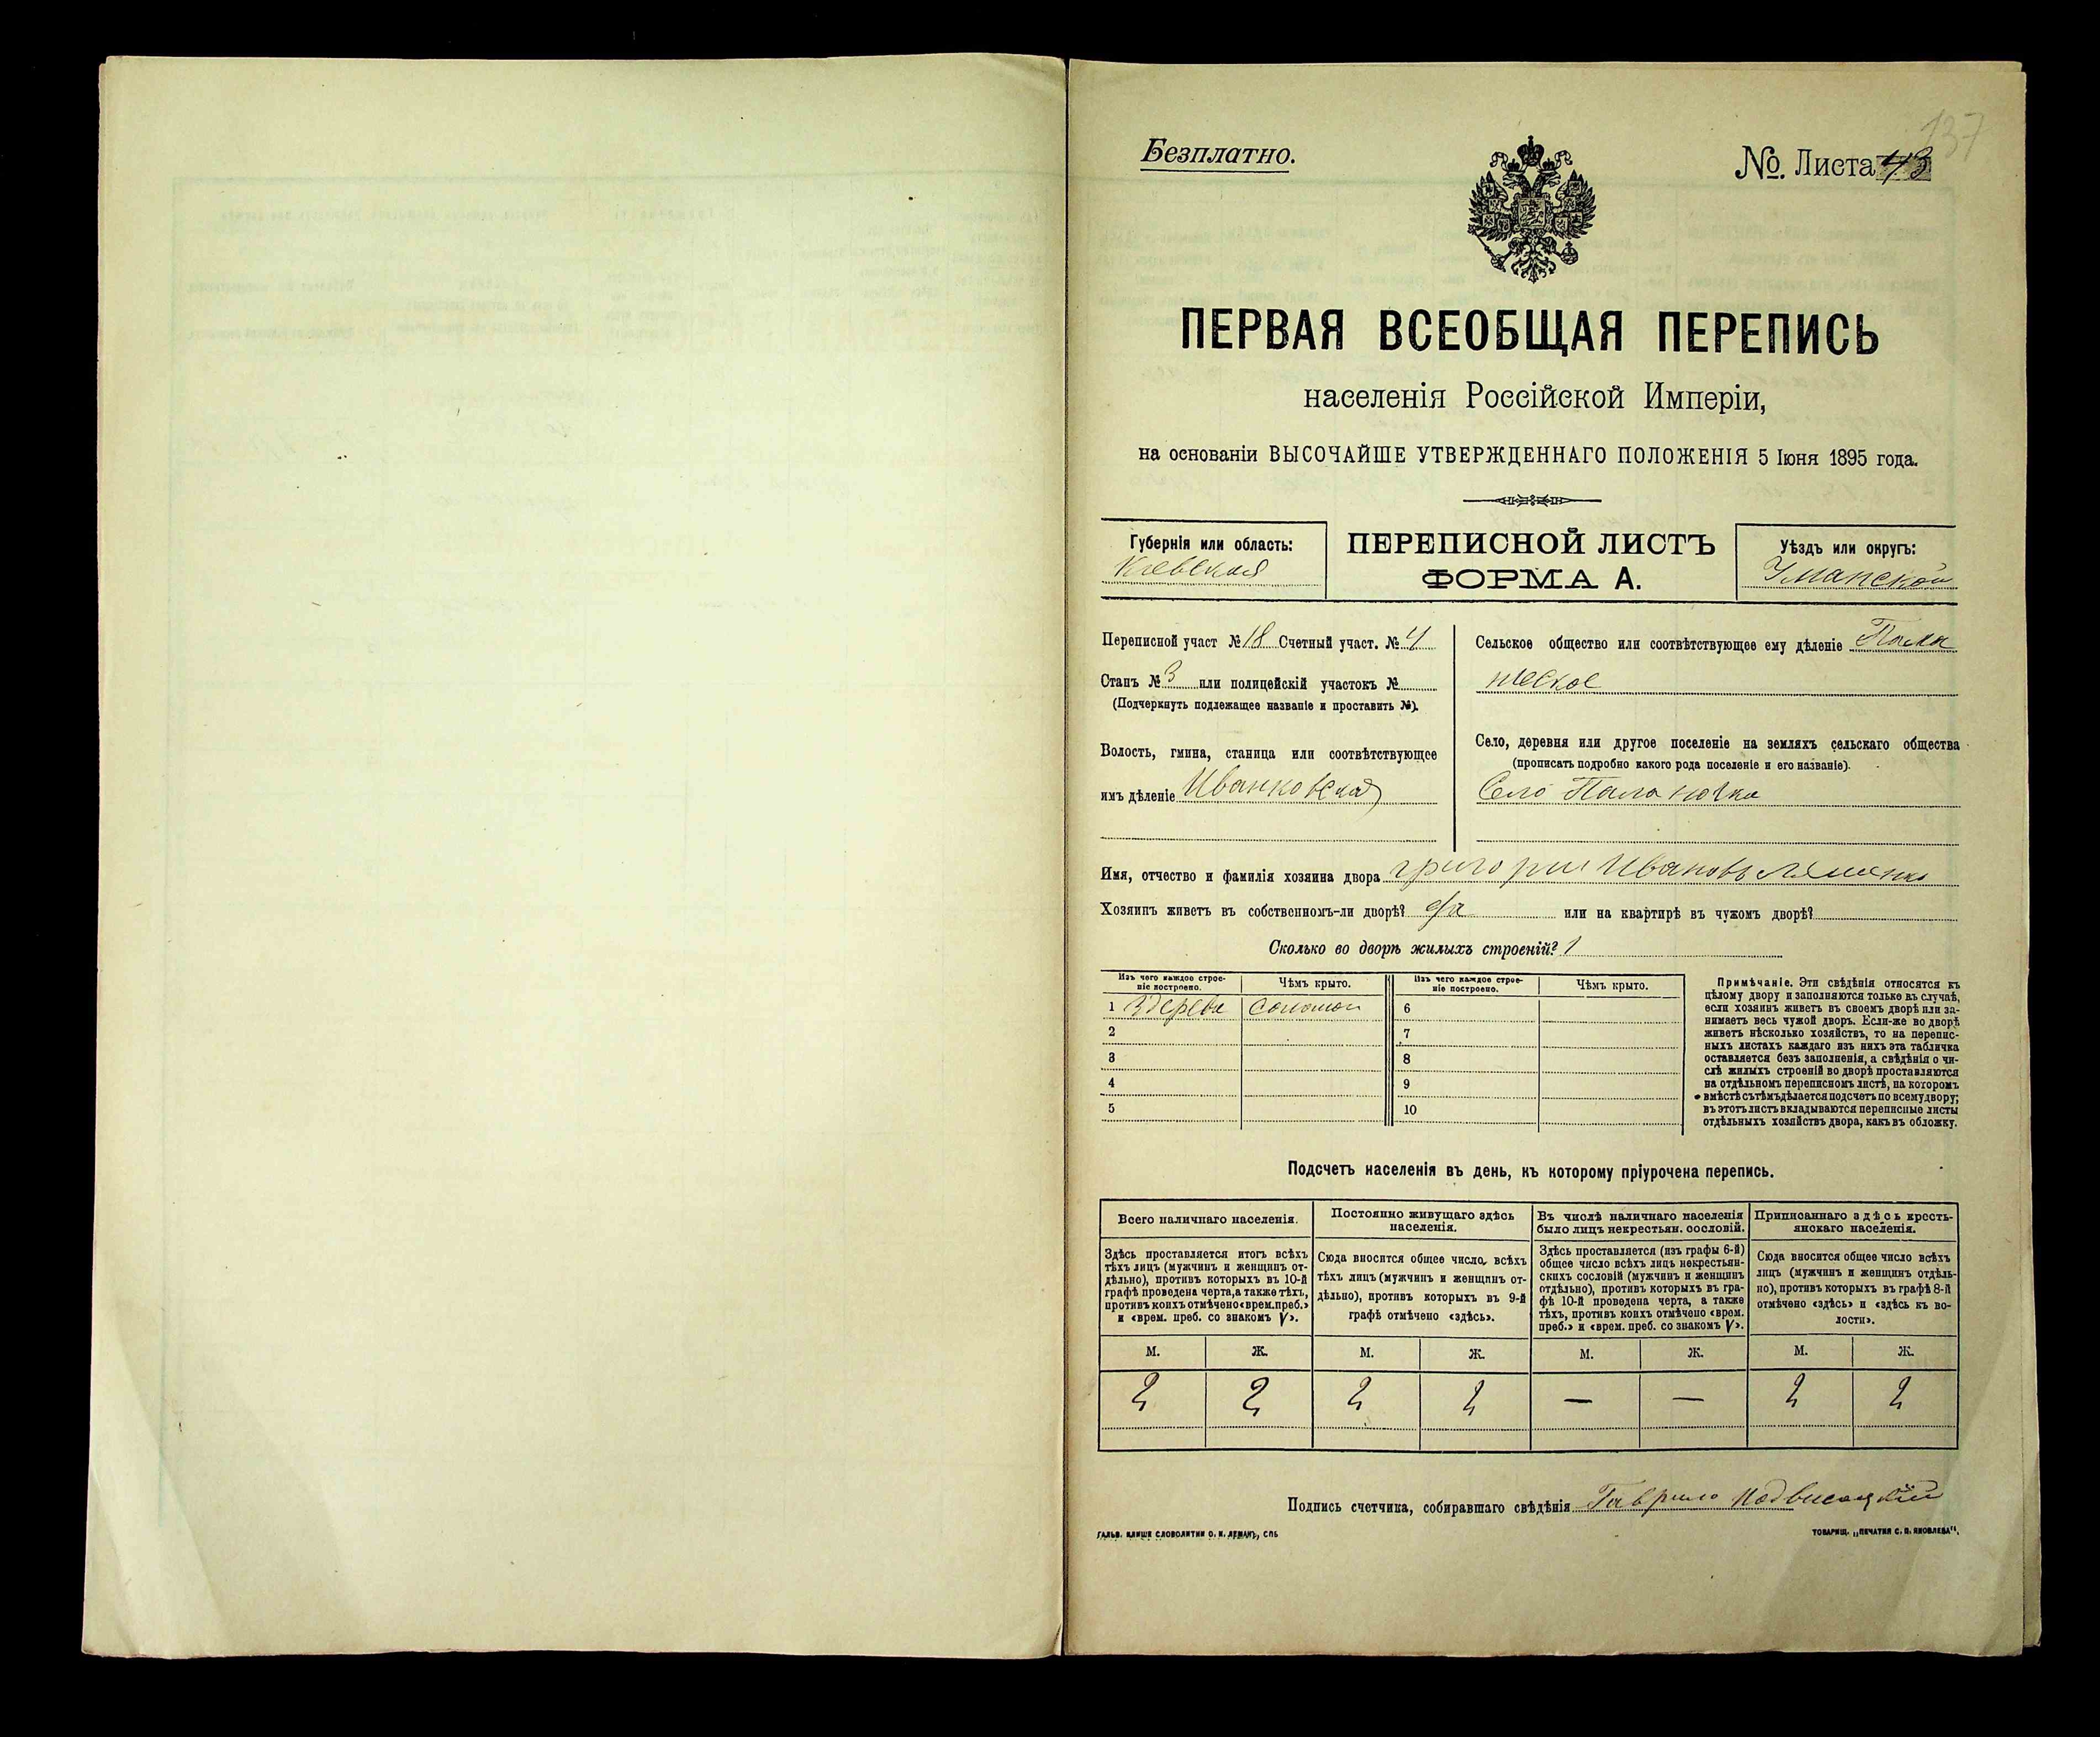 137
Безплатно.
№. Листа 43
ПЕРВАЯ ВСЕОБЩАЯ ПЕРЕПИСЬ
населенія Россійской Имперіи,
на основаніи ВЫСОЧАЙШЕ УТВЕРЖДЕННАГО ПОЛОЖЕНІЯ 5 Іюня 1895 года.
Губернія или область:
Кіевская
ПЕРЕПИСНОЙ ЛИСТЪ
ФОРМА А.
Уѣздъ или округъ:
Уманской
Переписной участ № 18 Счетный участ. № 4
Станъ № 3 или полицейскій участокъ №
(Подчеркнуть подлежащее названіе и проставить №).
Волость, гмина, станица или соотвѣтствующее
имъ дѣленіе Иванковская
Сельское общество или соотвѣтствующее ему дѣленіе
Село, деревня или другое поселеніе на земляхъ сельскаго общества
(прописать подробно какого рода поселеніе и его названіе).
Село Паланочка
Имя, отчество и фамилія хозяина двора Григорій Ивановъ Ляшенко
Хозяинъ живетъ въ собственномъ-ли дворѣ? да или на квартирѣ въ чужомъ дворѣ?
Сколько во дворѣ жилыхъ строеній? 1
Изъ чего каждое строе-
ніе построено.
Чѣмъ крыто.
Изъ чего каждое строе-
ніе построено.
Чѣмъ крыто.
1 Здерева соломой 6
2 7
3 8
4 9
5 10
Примѣчаніе. Эти свѣдѣнія относятся къ
цѣлому двору и заполняются только въ случаѣ,
если хозяинъ живетъ въ своемъ дворѣ или за-
нимаетъ весь чужой дворъ. Если-же во дворѣ
живетъ нѣсколько хозяйствъ, то на перепис-
ныхъ листахъ каждаго изъ нихъ эта табличка
оставляется безъ заполненія, а свѣдѣнія о чи-
слѣ жилыхъ строеній во дворѣ проставляются
на отдѣльномъ переписномъ листѣ, на которомъ
вмѣстѣ съ тѣмъ дѣлается подсчетъ по всему двору;
въ этотъ листъ вкладываются переписные листы
отдѣльныхъ хозяйствъ двора, какъ въ обложку.
Подсчетъ населенія въ день, къ которому пріурочена перепись.
Всего наличнаго населенія.
Здѣсь проставляется итогъ всѣхъ
тѣхъ лицъ (мужчинъ и женщинъ от-
дѣльно), противъ которыхъ въ 10-й
графѣ проведена черта, а также тѣхъ,
противъ коихъ отмѣчено «врем. преб.»
и «врем. преб. со знакомъ V».
Постоянно живущаго здѣсь
населенія.
Сюда вносится общее число, всѣхъ
тѣхъ лицъ (мужчинъ и женщинъ от-
дѣльно), противъ которыхъ въ 9-й
графѣ отмѣчено «здѣсь».
Въ числѣ наличнаго населенія
было лицъ некрестьян. сословій.
Здѣсь проставляется (изъ графы 6-й)
общее число всѣхъ лицъ некрестьян-
скихъ сословій (мужчинъ и женщинъ
отдѣльно), противъ которыхъ въ гра-
фѣ 10-й проведена черта, а также
тѣхъ, противъ коихъ отмѣчено «врем.
преб.» и «врем. преб. со знакомъ V».
Приписаннаго здѣсь кресть-
янскаго населенія.
Сюда вносится общее число всѣхъ
лицъ (мужчинъ и женщинъ отдѣль-
но), противъ которыхъ въ графѣ 8-й
отмѣчено «здѣсь» и «здѣсь къ во-
лости».
М. Ж. М. Ж. М. Ж. М. Ж.
2 2 2 2 — — 2 2
Подпись счетчика, собиравшаго свѣдѣнія Гаврило Подвисоцкій
ГАЛЬВ. КЛИШЕ СЛОВОЛИТНИ О. И. ЛЕМАНЪ, СПБ
ТОВАРИЩ. „ПЕЧАТНЯ С. П. ЯКОВЛЕВА".